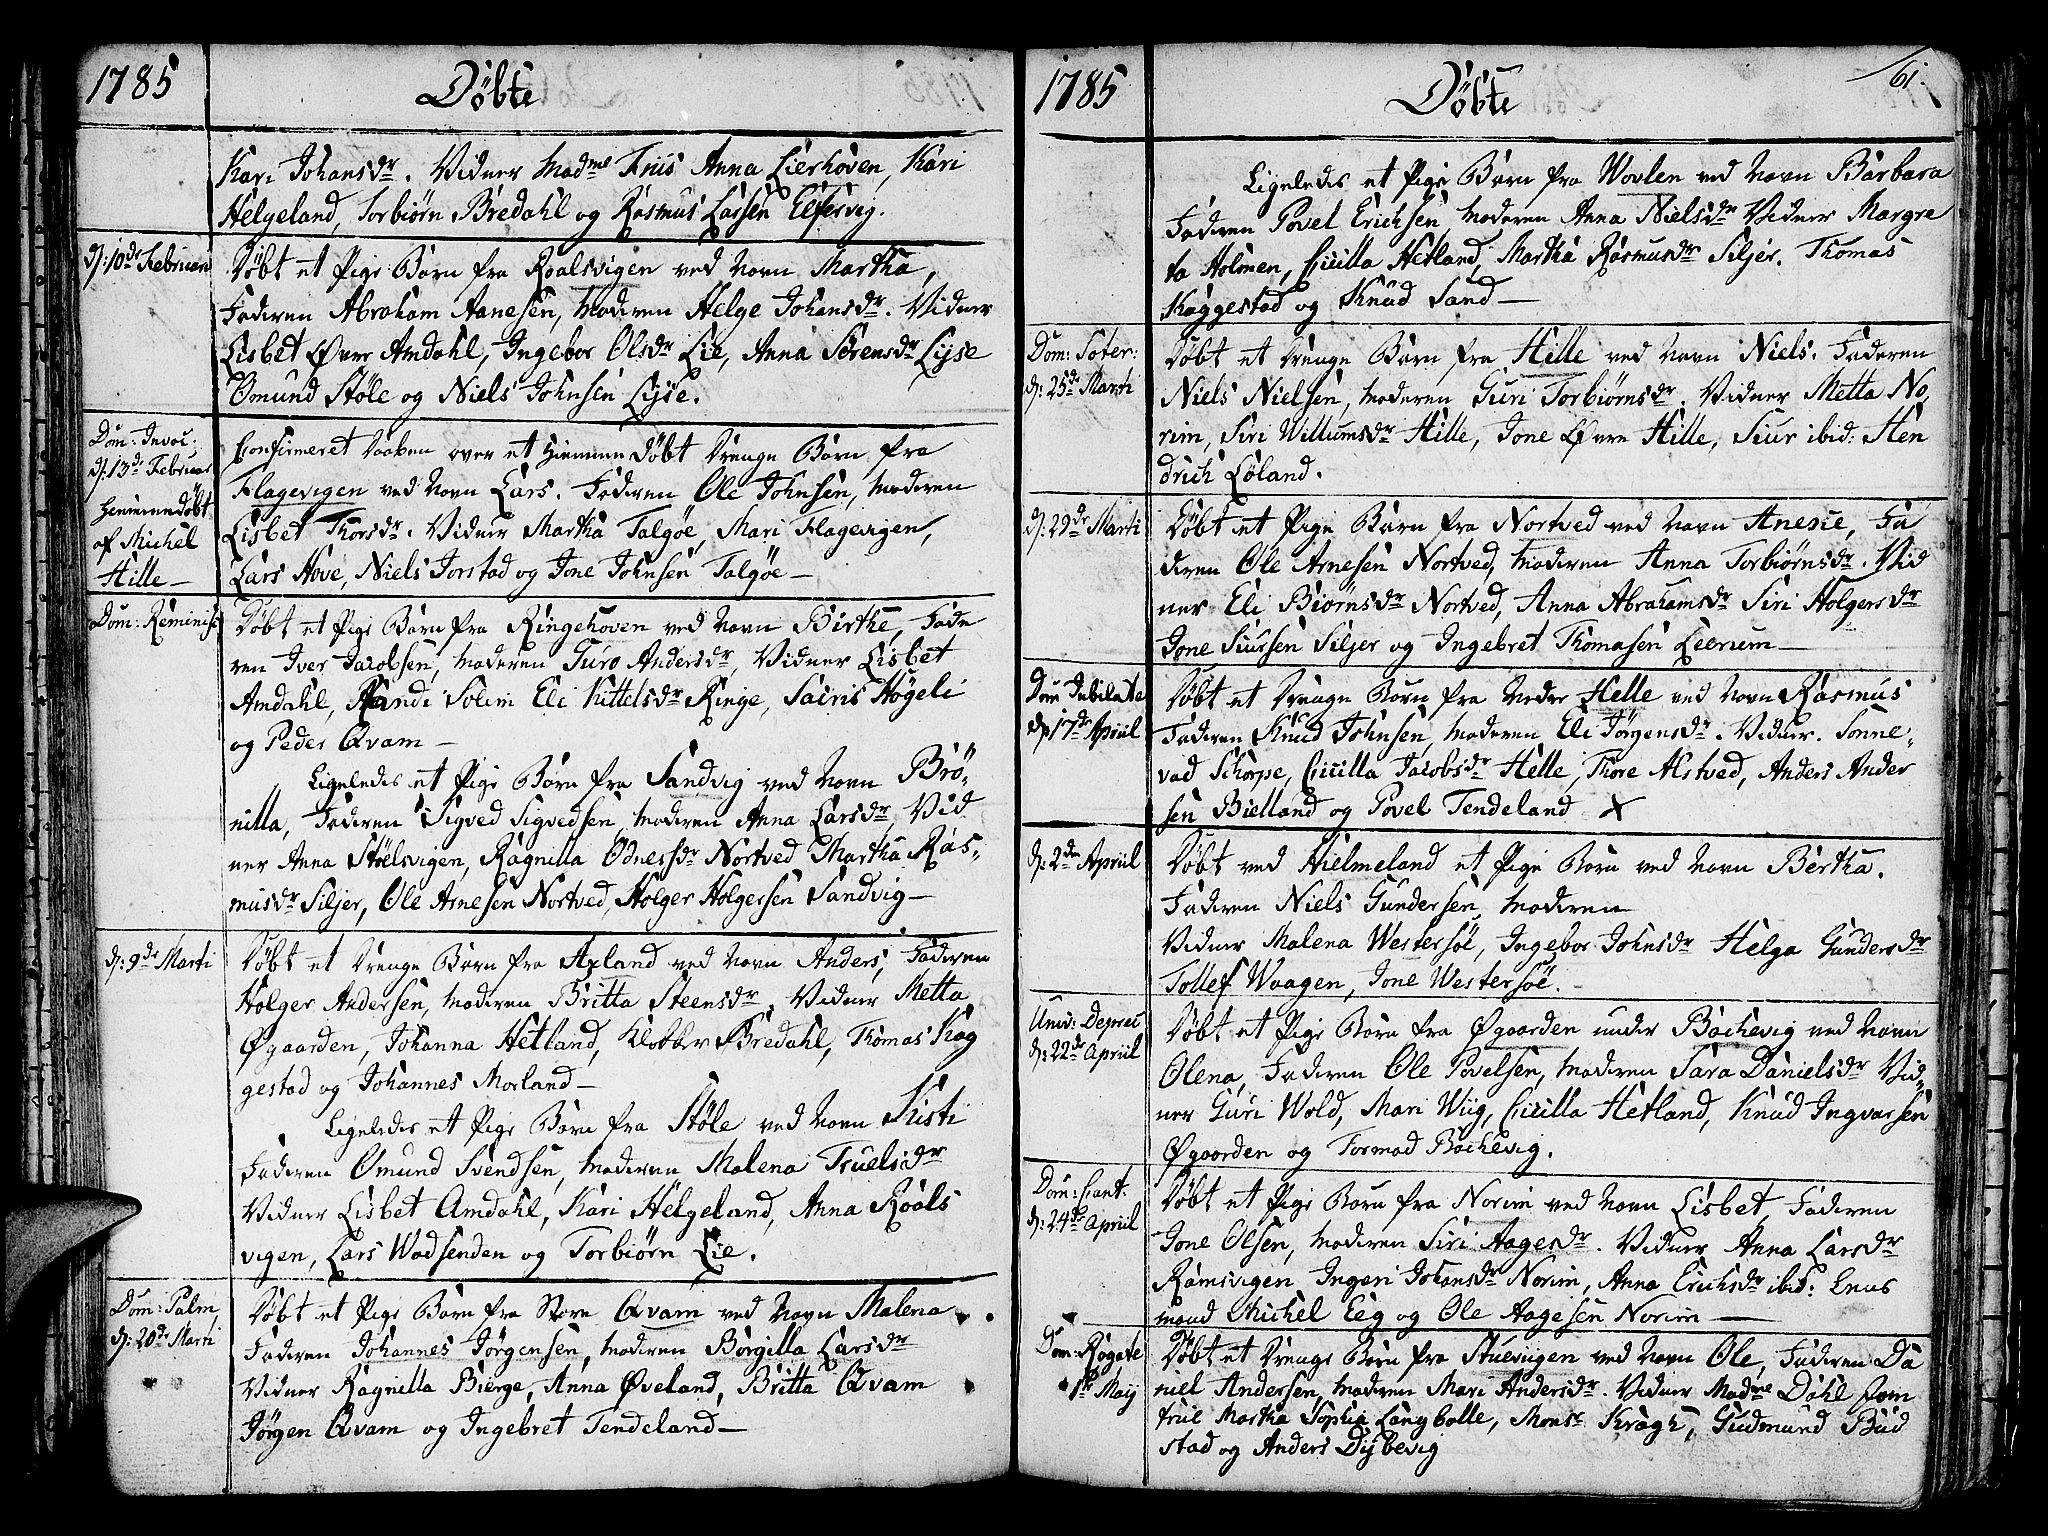 1785
Döbte
Kari Johansdr. Vidner Madme Friis Anna Lierhoven, Kari
Helgeland, Torbiörn Bredahl og Rasmus Larsen Elfervig.
d: 10de Februari
Döbt et Pige Barn fra Roalsvigen ved Navn Martha,
Faderen Abraham Aanesen, Moderen Helge Johansdr. Vidner
Lisbet Øvre Amdahl, Ingebor Olsdr Lie, Anna Sörensdr Lyse
Omund Stöle og Niels Johnsen Lyse.
Dom: Invoc:
d. 13de Februar
hiemmedöbt
af Michel
Hille—
Confirmeret Daaben over et hiemmedöbt Drenge Barn fra
Flagevigen ved Navn Lars. Faderen Ole Johnsen, Moderen
Lisbet Thorsdr. Vidner Martha Talgöe, Mari Flagevigen,
Lars Hove, Niels Jorstad og Jone Johnsen Talgöe—
Dom: Reminisc
Döbt et Pige Barn fra Ringehoven ved Navn Birthe, Fade
ren Iver Jacobsen, Moderen Guro Andersdr, Vidner Lisbet
Amdahl, Randi Solem Eli Kittelsdr Ringe, Sacris Högeli
og Peder Qvam—
Ligeledes et Pige Barn fra Sandvig ved Navn Brö-
nilla, Faderen Sigved Sigvedsen, Moderen Anna Larsdr, Vid
ner Anna Stölsvigen, Ragnilla Odnesdr Nortved Martha Ras-
musdr Siljer, Ole Arnesen Nortved, Holger Holgersen Sandvig—
d: 9de Marti
Döbt et Drenge Barn fra Axland ved Navn Anders, Faderen
Holger Andersen, Moderen Britta Steensdr. Vidner Metta
Øgaarden, Johanna Hetland, Bredahl, Thomas Kag
gestad og Johannes Morland—
Ligeledes et Pige Barn fra Stöle ved Navn Kisti
Faderen Omund Svendsen, Moderen Malena Truelsdr
Vidner Lisbet Amdahl, Kari Helgeland, Anna Roals
vigen, Lars Wadsenden og Torbiörn Lie.
Dom: Palm
d: 20de Marti
Döbt et Pige Barn fra Store Qvam ved Navn Malena
Faderen Johannes Jörgensen, Moderen Börgilla Larsdr
Vidner Ragnilla Bierge, Anna Øveland, Britta Qvam
Jörgen Qvam og Ingebret Tendeland—
1785
Döbte
61.
Ligeledes et Pige Barn fra Wovlen ved Navn Barbara
Faderen Povel Erichsen, Moderen Anna Nielsdr Vidner Margre
ta Holmen, Cicilla Hetland, Martha Rasmusdr Siljer. Thomas
Kaggestad og Knud Sand—
Dom: Soter:
d: 25de Marti
Döbt et Drenge Barn fra Hille ved Navn Niels. Faderen
Niels Nielsen, Moderen Guri Torbiörnsdr. Vidner Metta No,
rim, Siri Willumsdr Hille, Jone Øvre Hille, Siur ibid: Hen
drich Löland.
d: 29de Marti
Döbt et Pige Barn fra Nortved ved Navn Anesie, Fa
deren Ole Arnesen Nortved, Moderen Anna Torbiörnsdr. Vid
ner Eli Biörnsdr Nortved, Anna Abrahamsdr Siri Holgersdr
Jone Siursen Siljer og Ingebret Thomasen Leerum—
Dom Jubilate
d. 17de Apriil
Döbt et Drenge Barn fra Nedre Helle ved Navn Rasmus
Faderen Knud Johnsen, Moderen Eli Jörgensdr. Vidner. Sonne,
vad Schorpe, Cicilla Jacobsdr Helle, Thore Alstved, Anders Ander
sen Bielland og Povel Tendeland ✗
d: 2de Apriil
Döbt ved Hielmeland et Pige Barn ved Navn Bertha.
Faderen Niels Gundersen, Moderen
Vidner Malena Westersöe, Ingebor Johnsdr Helga Gundersdr
Tollef Waagen, Jone Westersöe.
Univ: Deprec
d: 22de Apriil
Döbt et Pige Barn fra Øgaarden under Bachevig ved Navn
Olena, Faderen Ole Povelsen, Moderen Sara Danielsdr Vid-
ner Guri Wold, Mari Wiig, Cicilla Hetland, Knud Ingvarsen
Øgaarden og Tormod Bachevig.
Dom: Cant.
d: 24de Apriil
Döbt et Pige Barn fra Norim ved Navn Lisbet, Faderen
Jone Olsen, Moderen Siri Aagesdr. Vidner Anna Larsdr
Ramsvigen, Ingeri Johansdr Norim, Anna Erichsdr ibid: Lens
mand Michel Eeg og Ole Aagesen Norim—
Dom: Rogate
1te Maij
Döbt et Drenge Barn fra Stuevigen ved Navn Ole, Faderen Da
niel Andersen, Moderen Mari Andersdr. Vidner Madme Dahl Jom
frue Martha Sophia Langballe, Monsr Kragh, Gudmund Bud
stad og Anders Dybevig